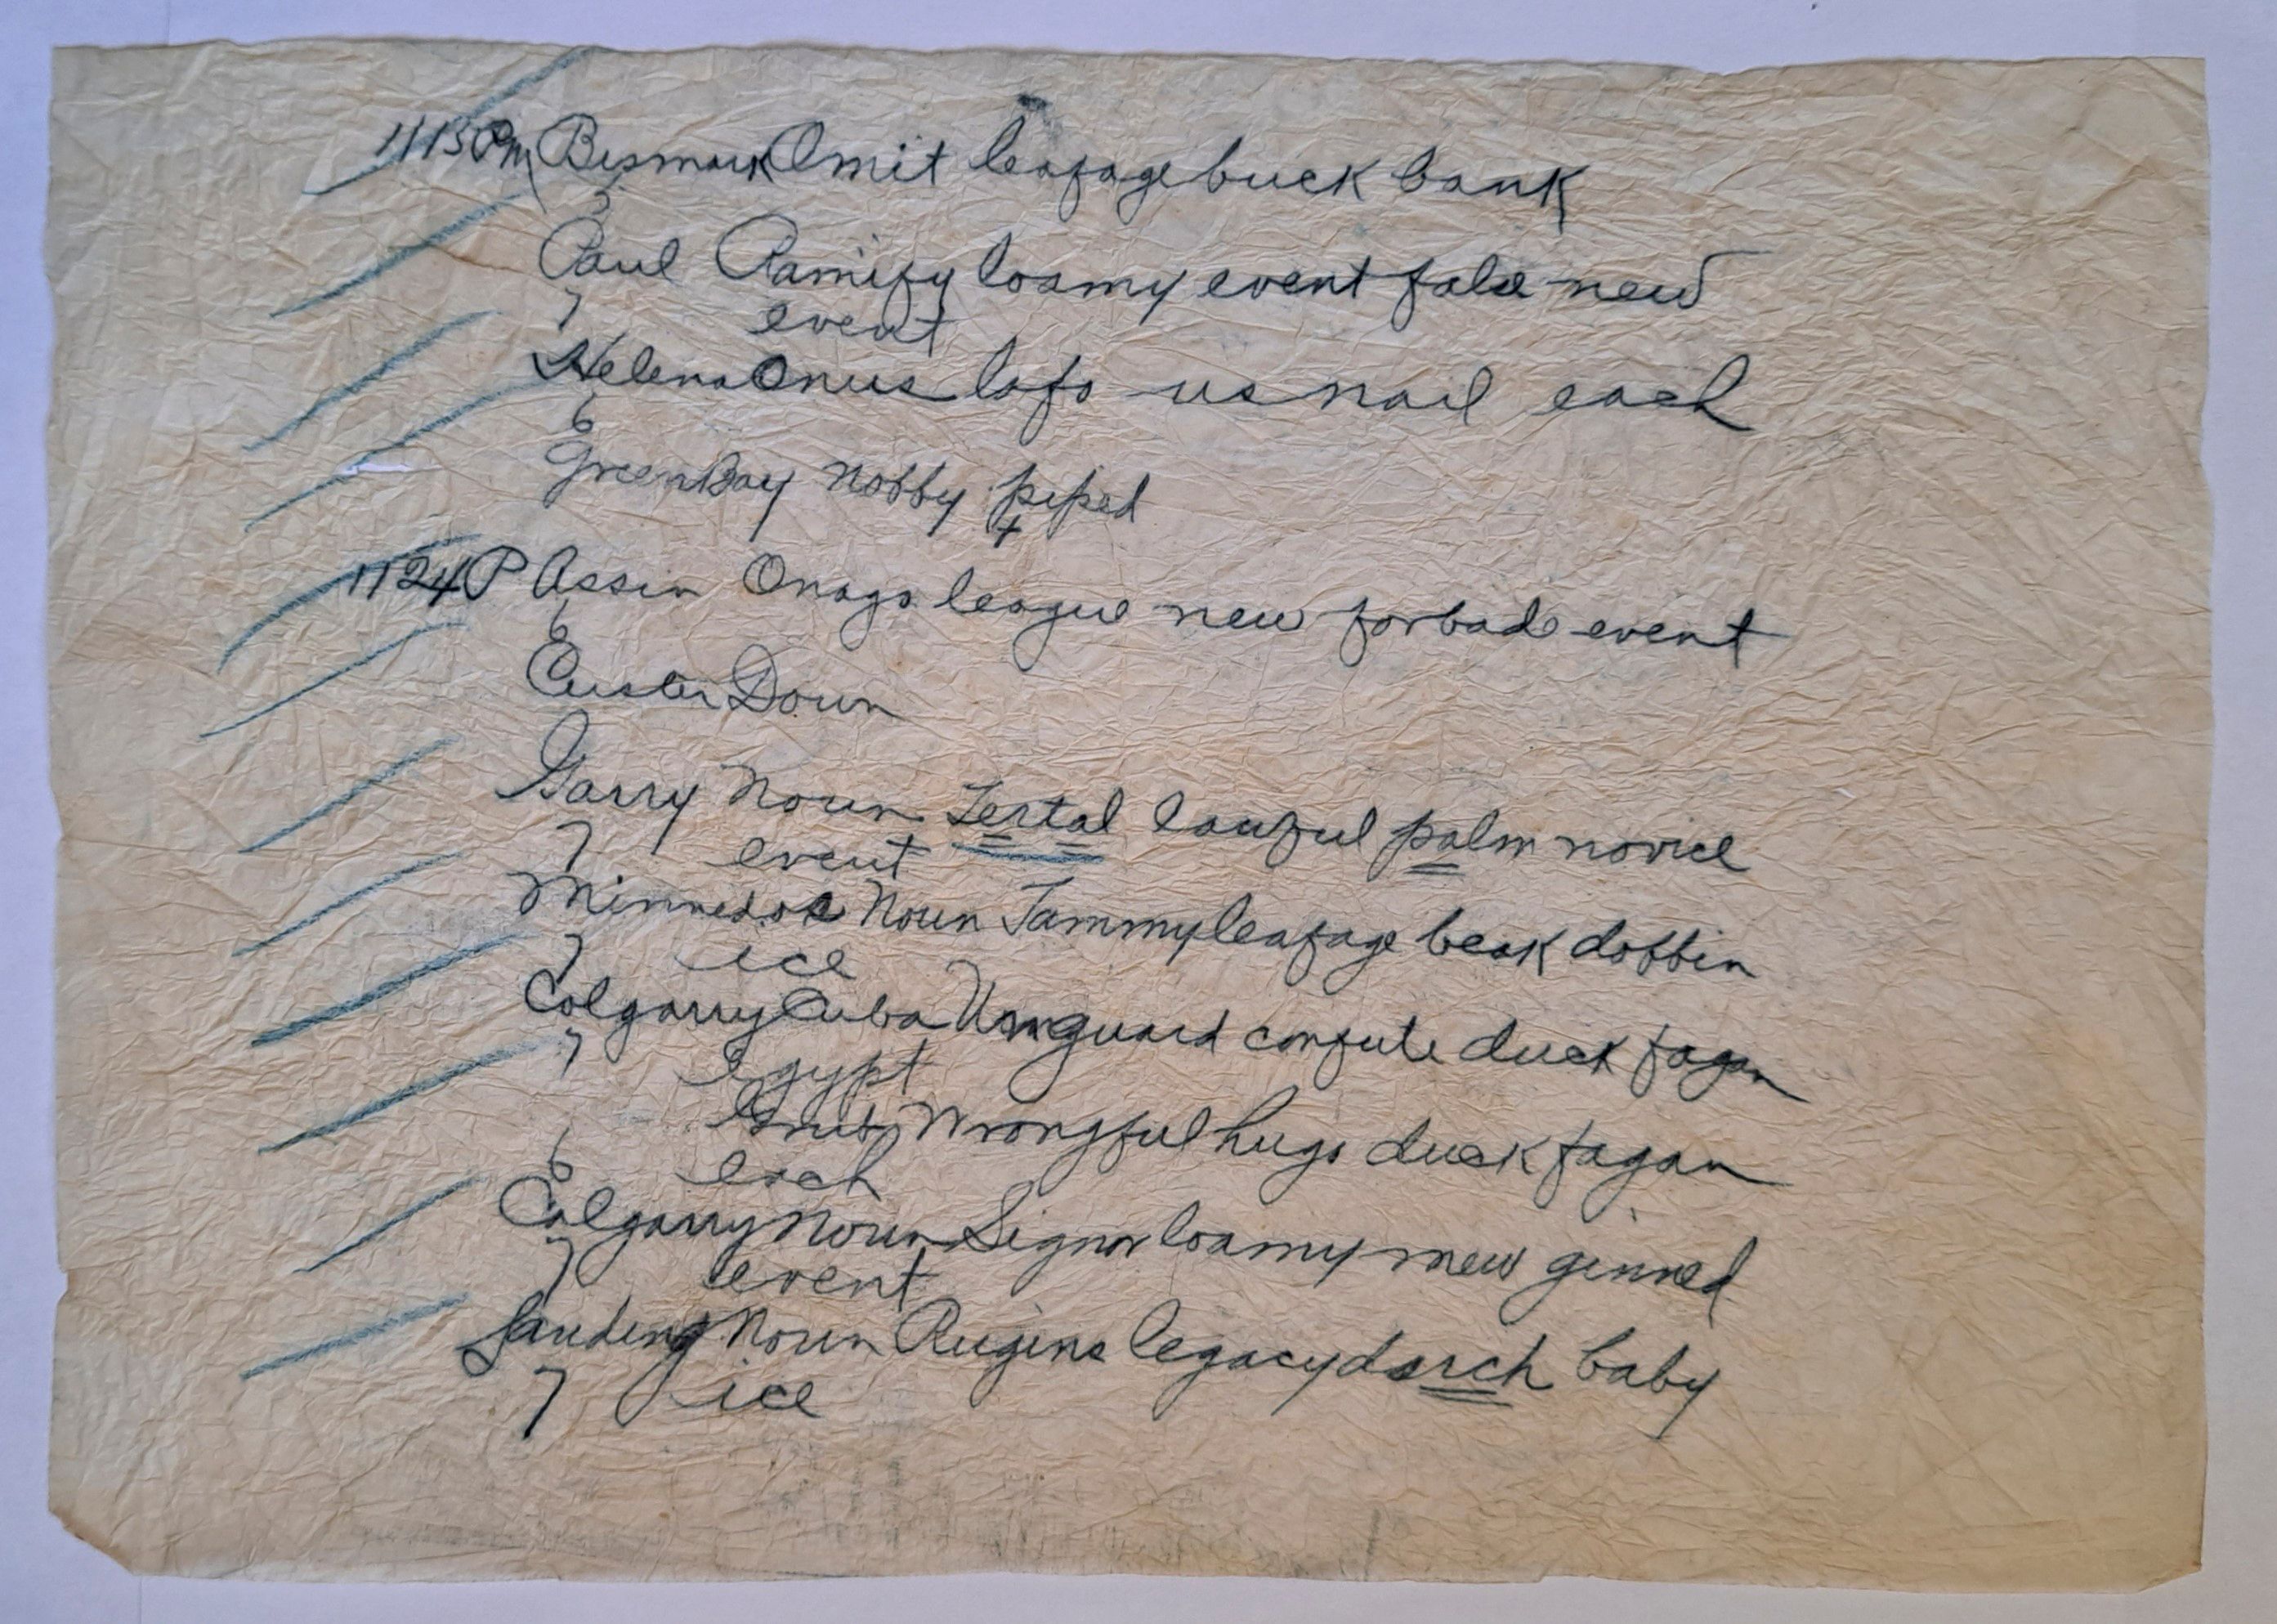 1113 Pm Bismark Omit leafage buck bank
5
Paul Ramify loamy event false new
7 event
Helena Onus lofo us nail each
6
Green Bay nobby piped
1124 P Assin Onago league new forbade event
6
Custer Down
Garry noun Tertal lawful palm novice
7 event
Minnedos Noun Jammy leafage beak dobbin
7 ice
Calgarry Cuba Unguard confute duck fagan
7 Egypt
Grub Wrongful hugo duck fagan
6 each
Calgarry Noun Signor loamy mew ginned
7 event
Landing Noun Rugins legacy darch baby
7 ice